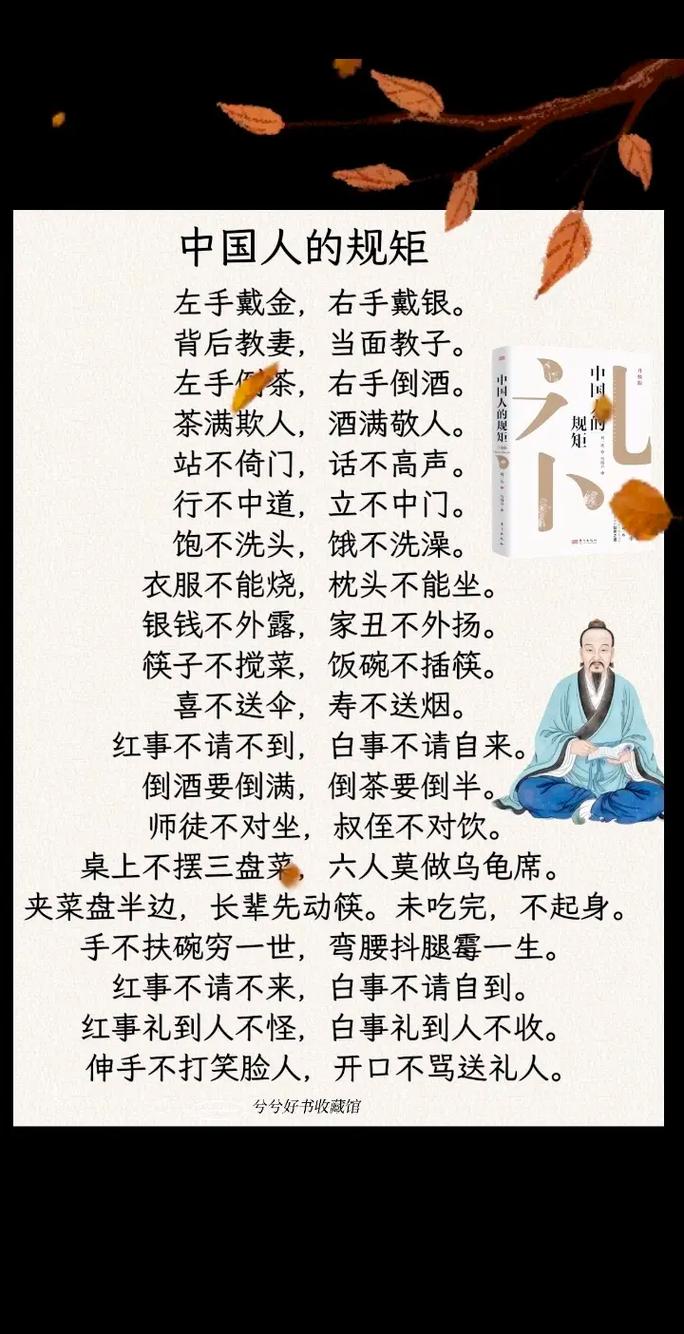 中国人的规矩
左手戴金，右手戴银。
背后教妻，当面教子。
左手倒茶，右手倒酒。
茶满欺人，酒满敬人。
站不倚门，话不高声。
行不中道，立不中门。
饱不洗头，饿不洗澡。
衣服不能烧，枕头不能坐。
银钱不外露，家丑不外扬。
筷子不搅菜，饭碗不插筷。
喜不送伞，寿不送烟。
红事不请不到，白事不请自来。
倒酒要倒满，倒茶要倒半。
师徒不对坐，叔侄不对饮。
桌上不摆三盘菜，六人莫做乌龟席。
夹菜盘半边，长辈先动筷。未吃完，不起身。
手不扶碗穷一世，弯腰抖腿霉一生。
红事不请不来，白事不请自到。
红事礼到人不怪，白事礼到人不收。
伸手不打笑脸人，开口不骂送礼人。
兮兮好书收藏馆
中国人的规矩
礼
中国人的
规矩